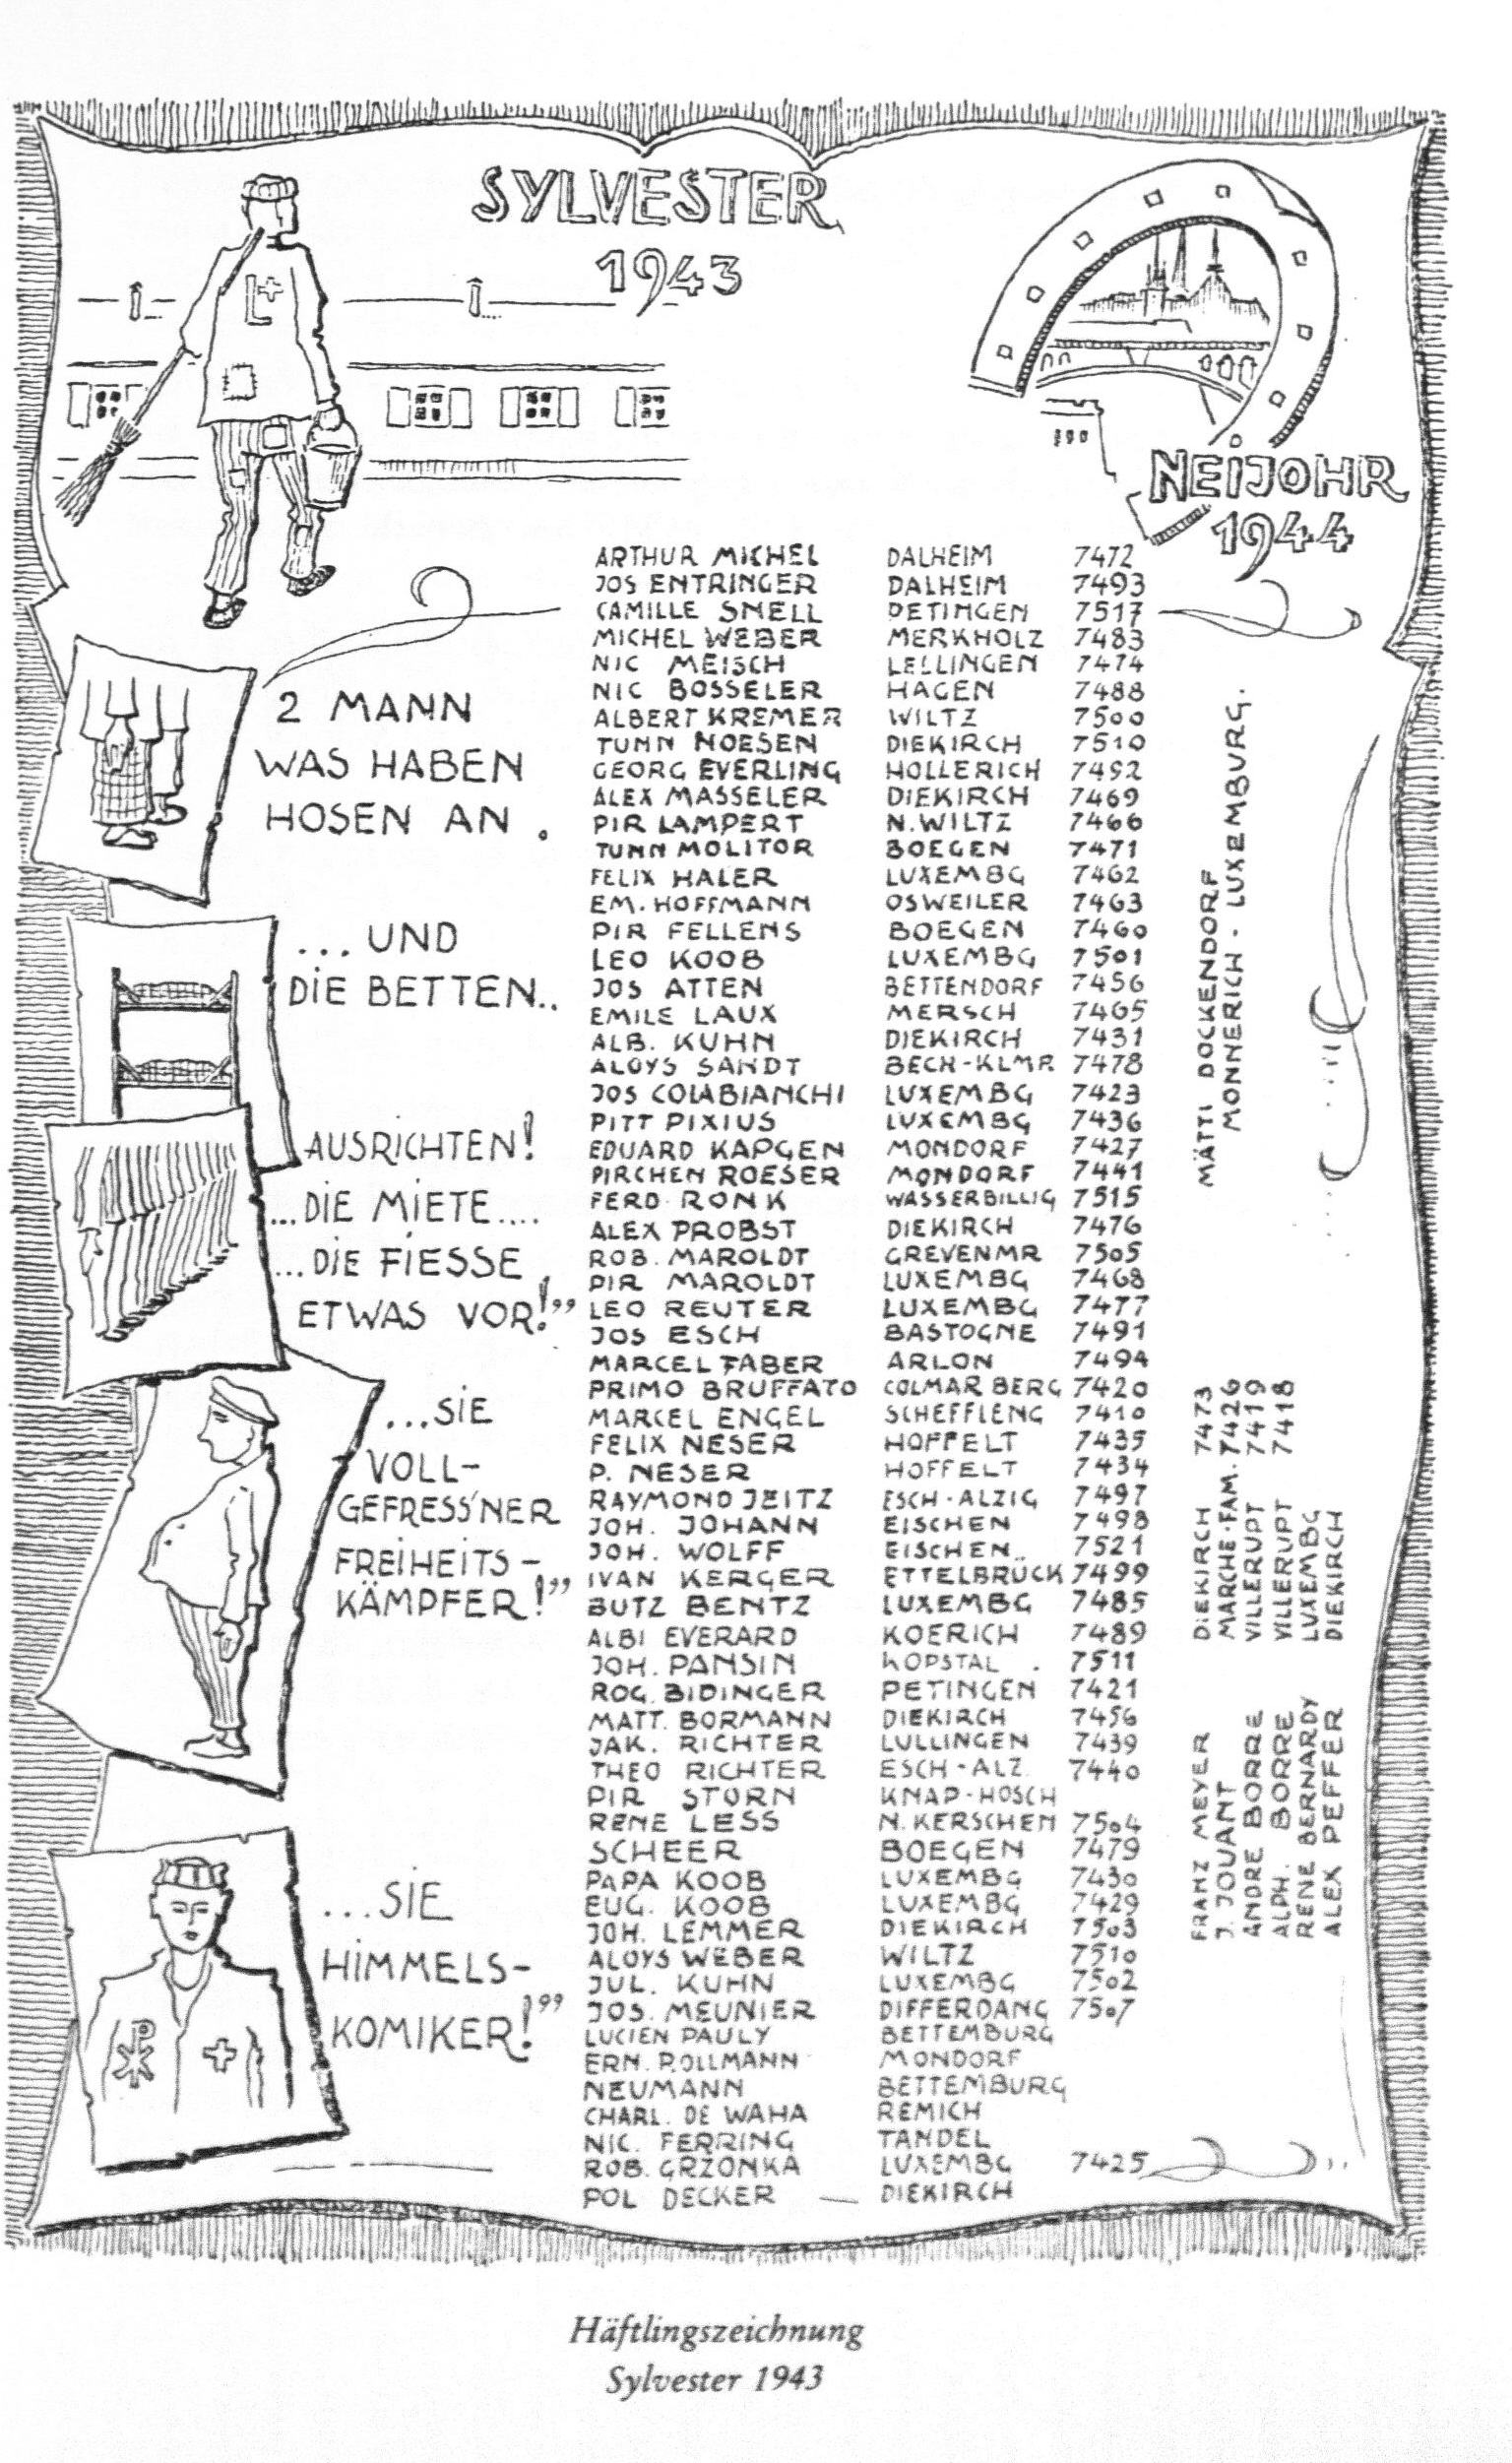 SYLVESTER
1943
NEIJOHR
1944
ARTHUR MICHEL DALHEIM 7472
JOS ENTRINGER DALHEIM 7493
CAMILLE SNELL PETINGEN 7517
MICHEL WEBER MERKHOLZ 7483
NIC MEISCH LELLINGEN 7474
NIC BOSSELER HAGEN 7488
ALBERT KREMER WILTZ 7500
TUNN NOESEN DIEKIRCH 7510
GEORG EVERLING HOLLERICH 7492
ALEX MASSELER DIEKIRCH 7469
PIR LAMPERT N.WILTZ 7466
TUNN MOLITOR BOEGEN 7471
FELIX HALER LUXEMBG 7462
EM. HOFFMANN OSWEILER 7463
PIR FELLENS BOEGEN 7460
LEO KOOB LUXEMBG 7501
JOS ATTEN BETTENDORF 7456
EMILE LAUX MERSCH 7465
ALB. KUHN DIEKIRCH 7431
ALOYS SANDT BECH-KLMR 7478
JOS COLABIANCHI LUXEMBG 7423
PITT PIXIUS LUXEMBG 7436
EDUARD KAPGEN MONDORF 7427
PIRCHEN ROESER MONDORF 7441
FERD RONK WASSERBILLIG 7515
ALEX PROBST DIEKIRCH 7476
ROB. MAROLDT GREVENMR 7505
PIR MAROLDT LUXEMBG 7468
LEO REUTER LUXEMBG 7477
JOS ESCH BASTOGNE 7491
MARCEL FABER ARLON 7494
PRIMO BRUFFATO COLMAR BERG 7420
MARCEL ENGEL SCHEFFLENG 7410
FELIX NESER HOFFELT 7435
P. NESER HOFFELT 7434
RAYMOND JEITZ ESCH-ALZIG 7497
JOH. JOHANN EISCHEN 7498
JOH. WOLFF EISCHEN.. 7521
IVAN KERGER ETTELBRUCK 7499
BUTZ BENTZ LUXEMBG 7485
ALBI EVERARD KOERICH 7489
JOH. PANSIN KOPSTAL . 7511
ROG. BIDINGER PETINGEN 7421
MATT. BORMANN DIEKIRCH 7456
JAK. RICHTER LULLINGEN 7439
THEO RICHTER ESCH-ALZ. 7440
PIR STORN KNAP-HOSCH
RENE LESS N.KERSCHEN 7504
SCHEER BOEGEN 7479
PAPA KOOB LUXEMBG 7430
EUG. KOOB LUXEMBG 7429
JOH. LEMMER DIEKIRCH 7503
ALOYS WEBER WILTZ 7510
JUL. KUHN LUXEMBG 7502
JOS. MEUNIER DIFFERDANG 7507
LUCIEN PAULY BETTEMBURG
ERN. ROLLMANN MONDORF
NEUMANN BETTEMBURG
CHARL. DE WAHA REMICH
NIC. FERRING TANDEL
ROB. GRZONKA LUXEMBG 7425
POL DECKER — DIEKIRCH
2 MANN
WAS HABEN
HOSEN AN .
...UND
DIE BETTEN..
AUSRICHTEN!
...DIE MIETE....
...DIE FIESSE
ETWAS VOR!”
...SIE
VOLL-
GEFRESS'NER
FREIHEITS-
KÄMPFER!”
...SIE
HIMMELS-
KOMIKER!”
L+
MÄTTI DOCKENDORF
MONNERICH - LUXEMBURG.
FRANZ MEYER DIEKIRCH 7473
J. JOUANT MARCHE-FAM. 7426
ANDRE BORRE VILLERUPT 7419
ALPH. BORRE VILLERUPT 7418
RENE BERNARDY LUXEMBG
ALEX PEFFER DIEKIRCH
Häftlingszeichnung
Sylvester 1943